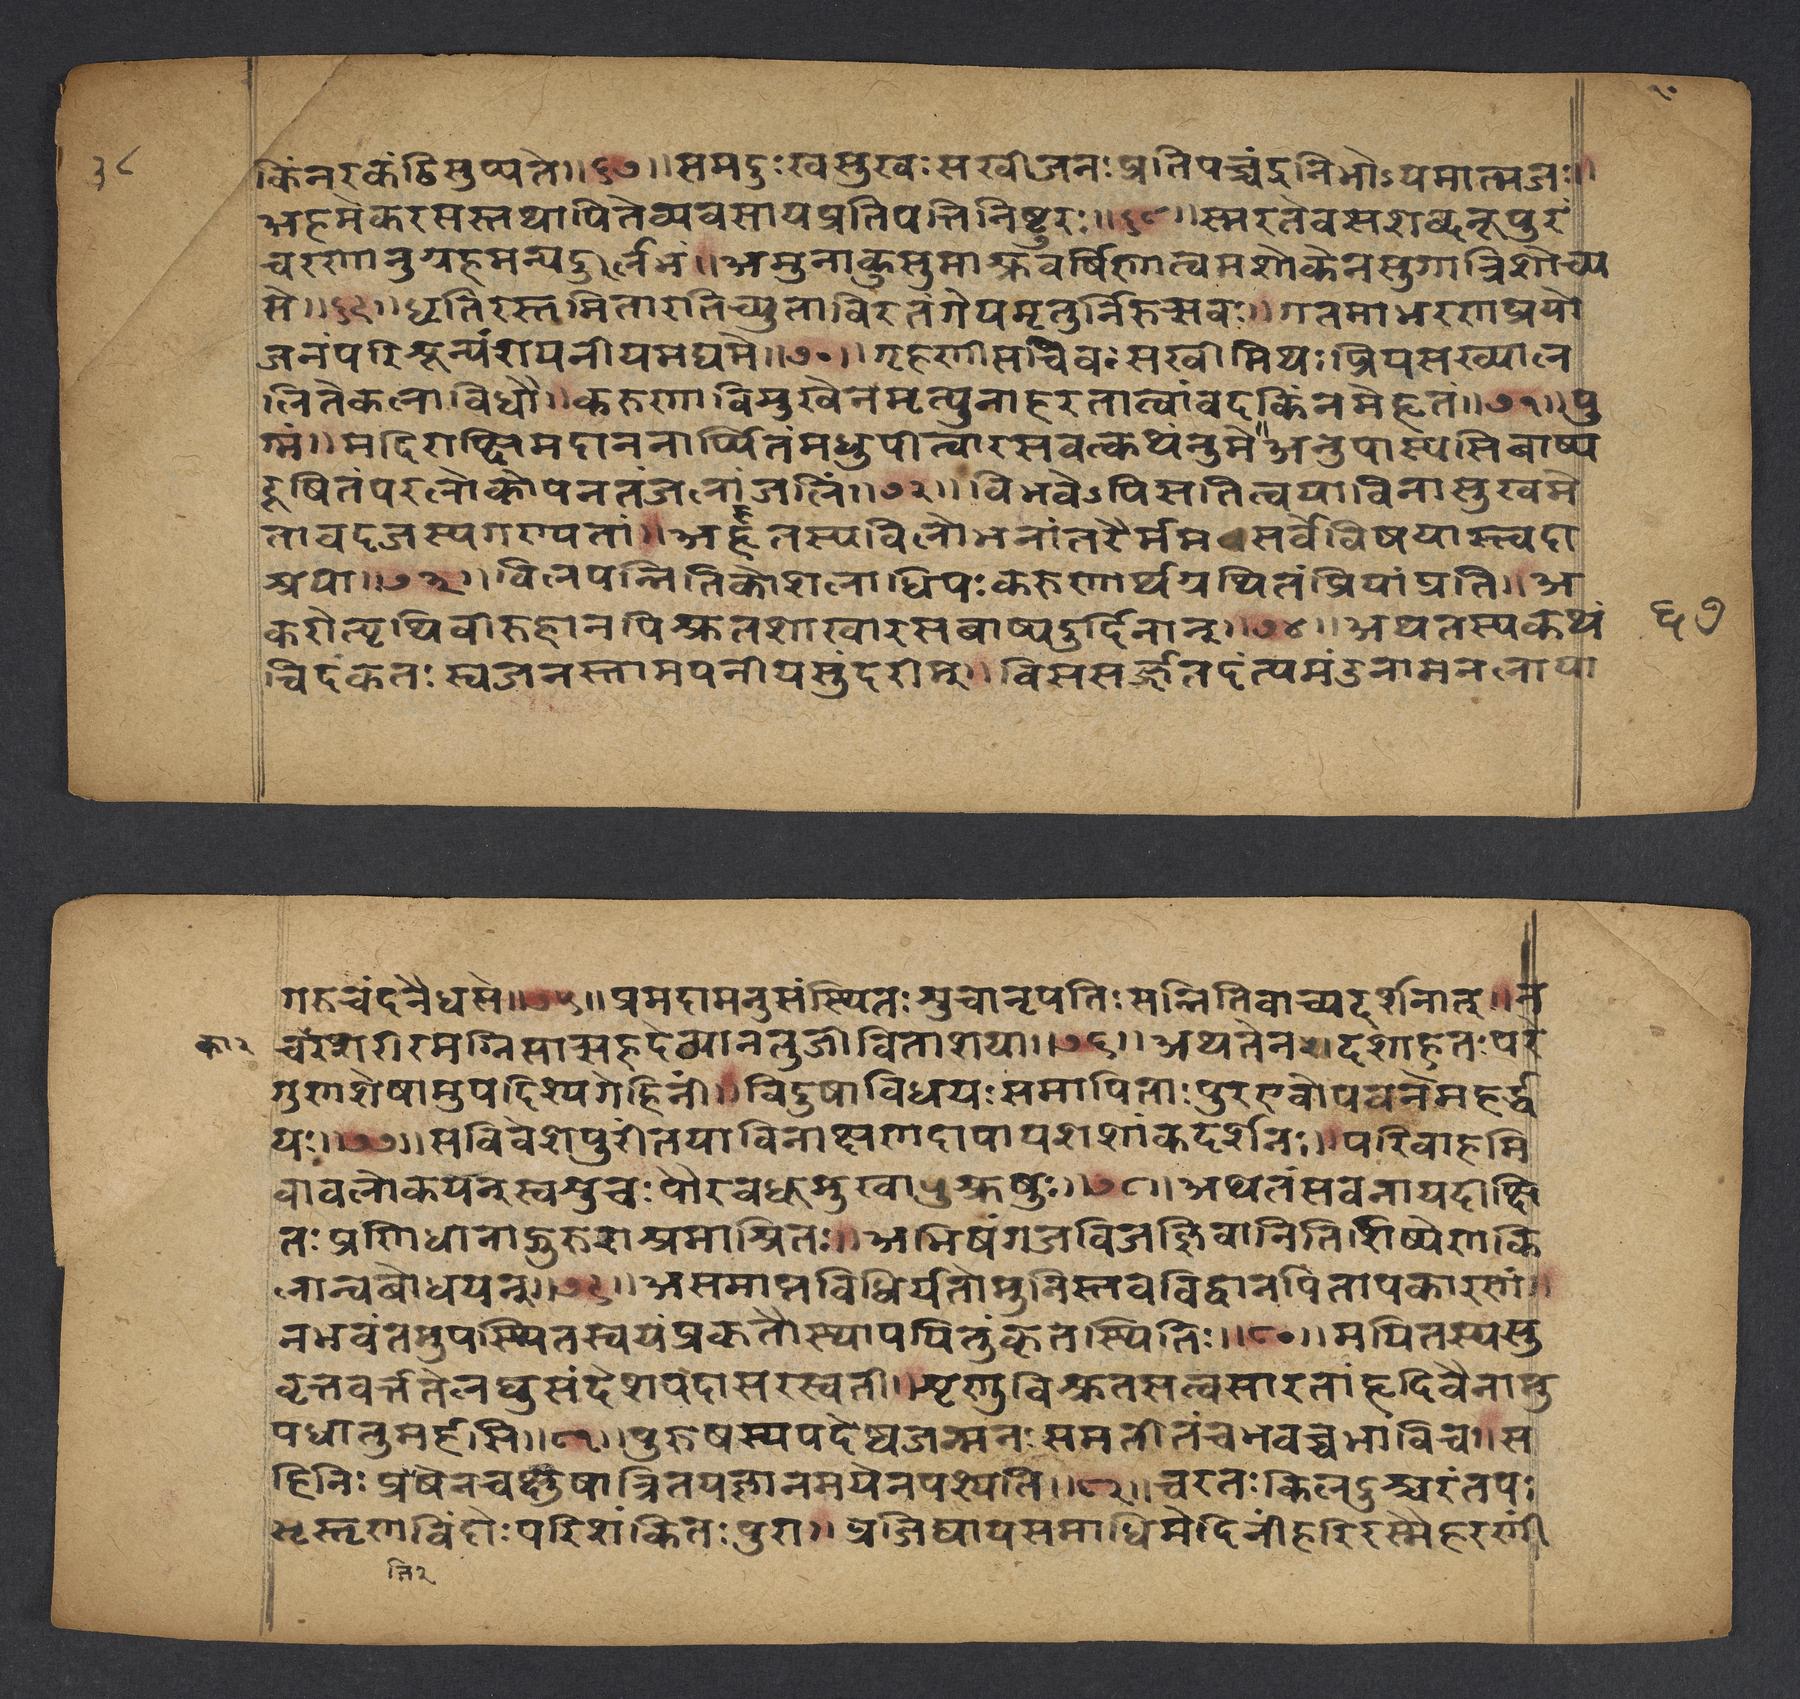 ३८
२०
किंनरकंठिसुप्यते॥६७॥समदुःखसुखःसखीजनःप्रतिपच्चंद्रनिभोऽयमात्मजः॥
अहमेकरसस्तथापितेव्यवसायप्रतिपत्तिनिष्ठुरः॥६८॥स्मरतेवसशब्दनूपुरं
चरणानुग्रहमन्यदुर्लभं॥अमुनाकुसुमाश्रुवर्षिणात्वमशोकेनसुगात्रिशोच्य
से॥६९॥धृतिरस्तमितारतिच्युताविरतंगेयमृतुर्निरुत्सवः॥गतमाभरणप्रयो
जनंपरिशून्यंशयनीयमद्यमे॥७०॥गृहणीसचिवःसखीमिथःप्रियसख्याल
लितेकलाविधौ॥करुणाविमुखेनमृत्युनाहरतात्वांवदकिंनमेहृतं॥७१॥यु
ग्मं॥मदिराक्षिमदाननार्प्पितंमधुपीत्वारसवत्कथंनुमे॥अनुपास्यसिबाष्प
दूषितंपरलोकोपनतंजलांजलिं॥७२॥विभवेऽपिसतित्वयाविनासुखमे
तावदजस्यगण्यतां॥अहृतस्यविलोभनांतरैर्ममसर्वेविषयास्त्वदा
श्रया॥७३॥विलपन्नितिकोशलाधिपःकरुणार्थग्रथितंप्रियांप्रति॥अ
करोत्पृथिवीरुहानपिश्रुतशाखारसबाष्पदुर्दिनान्॥७४॥अथतस्यकथं
६७
चिदंकतःस्वजनस्तामपनीयसुंदरीम्॥विससर्ज्जतदंत्यमंडनामनलाया
गरुचंदनैधसे॥७५॥प्रमदामनुसंस्थितःशुचानृपतिःसन्नितिवाच्यदर्शनात्॥न
चरंशरीरमग्निसात्सहदेव्यानतुजीविताशया॥७६॥अथतेनदशाहतःपरे
कार
गुणशेषामुपदिश्यगेहिनीं॥विदुषाविधयःसमापिताःपुरएवोपवनेमहर्द्ध
यः॥७७॥सविवेशपुरींतयाविनाक्षणदापायशशांकदर्शनः॥परिवाहमि
वावलोकयन्स्वशुचःपौरवधूमुखाश्रुषुः॥७८॥अथतंसवनायदीक्षि
तःप्रणिधानाद्गुरुराश्रमाश्रितः॥अभिषंगजविजज्ञिवानितिशिष्येणकि
लान्वबोधयन्॥७९॥असमाप्तविधिर्यतोमुनिस्तवविद्वानपितापकारणं॥
नभवंतमुपस्थितस्वयंप्रकृतौस्थापयितुंकृतस्थितिः॥८०॥मयितस्यसु
वृत्तवर्त्ततेलघुसंदेशपदासरस्वती॥शृणुविश्रुतसत्वसारतांहृदिचैनामु
पधातुमर्हसि॥८१॥पुरुषस्यपदेष्वजन्मनःसमतीतंचभवच्चभाविच॥स
हिनिःप्रघेनचक्षुषात्रितयज्ञानमयेनपश्यति॥८२॥चरतःकिलदुश्चरंतपः
सृस्तृणविंदोःपरिशंकितःपुरा॥प्रजिघायसमाधिमेदिनींहरिरस्मैहरणीं
ति२